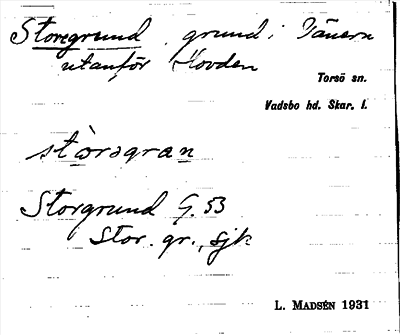 Storegrund, grund i Vänern
utanför Hovden
Torsö sn.
Vadsbo hd. Skar. l.
stòrəgran
Storgrund G. 53
Stor. gr., sjk
L. MADSÉN 1931